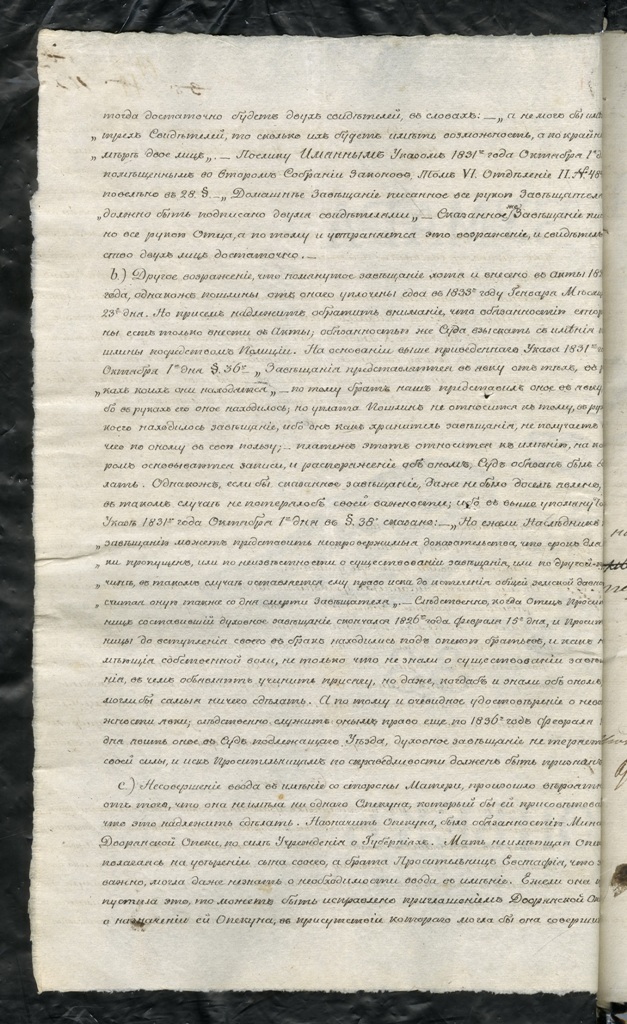 тогда достаточно будетъ двухъ свидѣтелей, въ словахъ: — „а немогъ бы имѣ
„трехъ Свидѣтелей, то сколько ихъ будетъ имѣть возможность, а по крайн
„мѣрѣ двое лицъ„. — Послику Имяннымъ Указомъ 1831го года Октября 1го д
помѣщеннымъ во Второмъ Собраніи Законовъ, Томъ VI. Отдѣленіе II. № 48
повелѣно въ 28. §. — „Домашнѣе Завѣщаніе писанное все рукою Завѣщателя
„должно быть подписано двумя свидѣтелями„ — Сказанное же Завѣщаніе пи
но все рукою Отца, а по тому и устраняется это возраженіе, и свидѣтель
ство двухъ лицъ достаточно. —
b.) Другое возраженіе, что помянутое завѣщаніе хотя и внесено въ акты 18
года, однакожъ пошлины отъ онаго уплочены едва въ 1833мъ году Генваря Мѣсяц
23го дня. Но присемъ надлежитъ обратить вниманіе, что обязанностію стор
ны есть только внести въ Акты; обязанностью же Суда взыскать съ имѣнія п
шлины посредствомъ Полиціи. На основаніи выше приведеннаго Указа 1831го
Октября 1го дня §. 36го „Завѣщанія представляются въ явку отъ тѣхъ, въ р
„кахъ коихъ они находятся„ — по тому братъ нашъ представилъ оное въ явку
бо въ рукахъ его оное находилось; но уплата Пошлинъ не относится къ тому, въ ру
коего находилось завѣщаніе, ибо онъ какъ хранитель завѣщанія, не получаетъ
чего по оному въ свою пользу; — платежъ этотъ относится къ имѣнію, на ко
ромъ основывается записи, и распоряженіе объ ономъ, Судъ обязанъ былъ с
лать. Однакожъ, если бы сказанное завѣщаніе, даже не было доселѣ явлено,
въ такомъ случаѣ не потерялобъ своей важности; ибо въ выше упомяну
Указѣ 1831го года Октября 1го дня въ §. 36мъ сказано: — „Но ежели Наслѣдникъ
„завѣщанія можетъ представить непровержимыя доказательства, что срокъ для
„ки пропущенъ, или по неизвѣстности о существованіи завѣщанія, или по другой п
„чинѣ, въ такомъ случаѣ оставляется ему право иска до истеченія общей земской давно
„считая оную также со дня смерти Завѣщателя„. — Слѣдственно, когда Отецъ Просит
ницъ составившій духовное завѣщаніе скончался 1826го года Февраля 15го дня, и Просит
ницы до вступленія своего въ бракъ находились подъ опекою братьевъ, и какъ н
имѣющія собственной воли, не только что не знали о существованіи завѣщ
нія, въ чемъ объявлятъ учинить присягу, но даже, когдабъ и знали объ ономъ
моглибы самыя ничего сдѣлать. А по тому и очевидное удостовѣреніе о нево
жности явки; слѣдственно, служитъ онымъ право еще по 1836й годъ Февраля 1
дня явить оное въ Судъ подлежащаго Уѣзда, духовное завѣщаніе не теряетъ
своей силы, и искъ Просительницамъ по справедливости долженъ быть признанъ
c.) Несовершеніе ввода въ имѣніе со стороны Матери, произошло вѣроятн
отъ того, что она не имѣла ни одного Опекуна, который бы ей присовѣтова
что это надлежитъ сдѣлать. Назначить Опекуна, было обязанностію Минс
Дворянской Опеки, по силѣ Учрежденія о Губерніяхъ. Мать не имѣющая Опе
полагаясь на усердіи сына своего, а брата Просительницъ Евстафія, что э
важно, могла даже незнать о необходимости ввода въ имѣніе. Ежели она
пустила это, то можетъ быть исправлено приглашеніемъ Дворянской Оп
о назначеніи ей Опекуна, въ присутствіи котораго могла бы она соверши